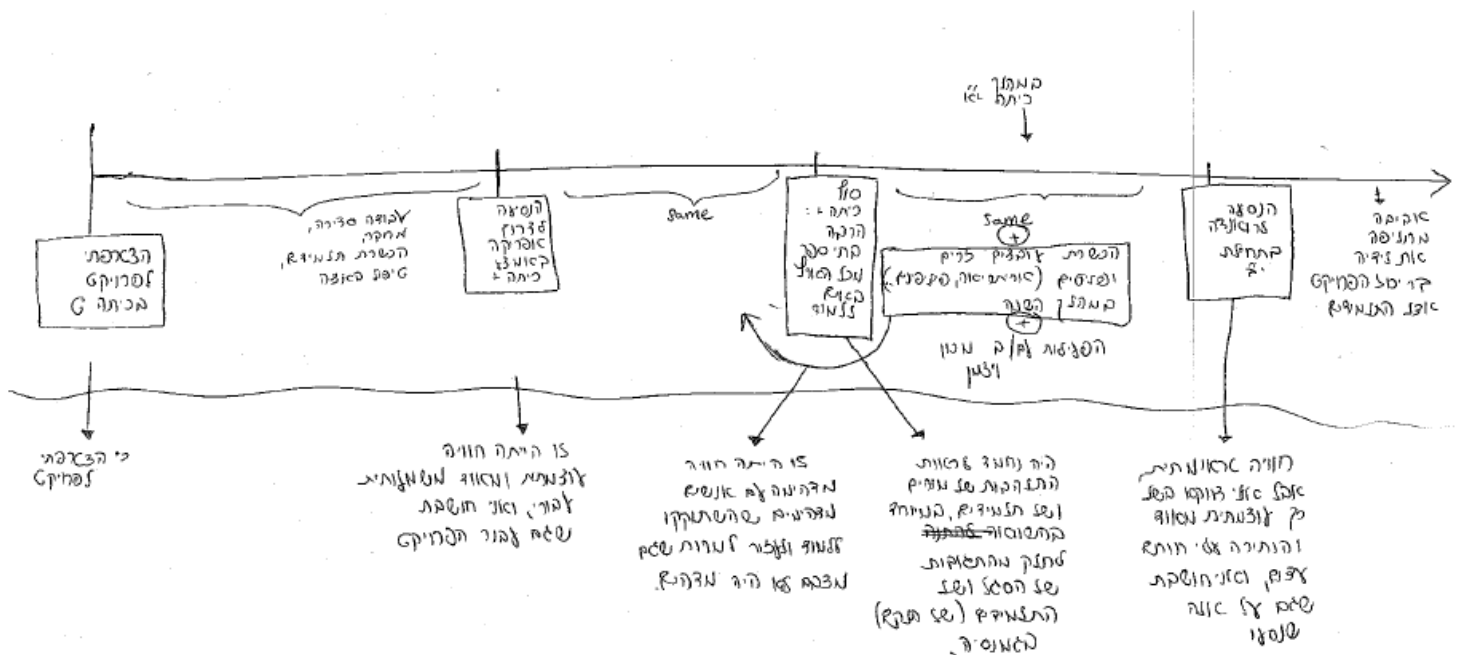 במהלך
כיתה י"א
הצטרפתי
לפרויקט
בכיתה ט
עבודה סדירה,
מחקר,
הכשרת תלמידים,
טיפול באוצה
הנסיעה
לדרום
אפריקה
באמצע
כיתה י
same
סוף
כיתה י:
הרבה
בתי ספר
מכל הארץ
באים
ללמוד
same
+
הכשרת עובדים זרים
ופליטים (אריתריאה, פיליפינים)
במהלך השנה
+
הפעילות עם/ב מכון
ויצמן
הנסיעה
לרואנדה
בתחילת
יב
אביבה
מחליפה
את לידיה
בריכוז הפרויקט
אצל התלמידים
כי הצטרפתי
לפרויקט
זו הייתה חוויה
עוצמתית ומאוד משמעותית
עבורי, ואני חושבת
שגם עבור הפרויקט
זו הייתה חוויה
מדהימה עם אנשים
מדהימים שהשתוקקו
ללמוד ולעזור למרות שגם
מצבם לא היה מדהים.
היה נחמד לראות
התלהבות של מורים
ושל תלמידים, במיוחד
בהשוואה
לחלק מהתגובות
של הסגל ושל
התלמידים (של חלקם)
בגמנסיה
חוויה טראומתית,
אבל אולי דווקא בשל
כך עוצמתית מאוד
והותירה עלי חותם
עצום, ואני חושבת
שגם על אלה
שנסעו